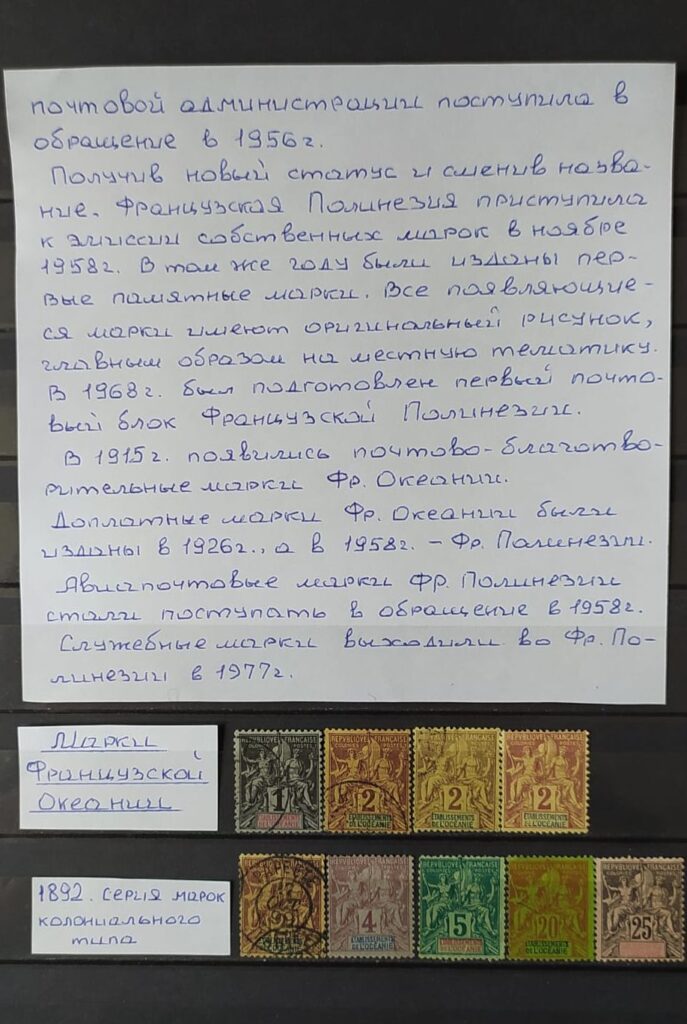 почтовой администрации поступила в
обращение в 1956г.
Получив новый статус и сменив назва-
ние. Французская Полинезия приступила
к эмиссии собственных марок в ноябре
1958г. В том же году были изданы пер-
вые памятные марки. Все появляющие-
ся марки имеют оригинальный рисунок,
главным образом на местную тематику.
В 1968г. был подготовлен первый почто-
вый блок Французской Полинезии.
В 1915г. появились почтово-благотво-
рительные марки Фр. Океании.
Доплатные марки Фр. Океании были
изданы в 1926г., а в 1958г. – Фр. Полинезии.
Авиапочтовые марки Фр. Полинезии
стали поступать в обращение в 1958г.
Служебные марки выходили во Фр. По-
линезии в 1977г.
Марки
Французской
Океании
REPVBLIQVE FRANÇAISE
COLONIES POSTES
1
REPVBLIQVE FRANÇAISE
2
ETABLISSEMENTS
DE L'OCÉANIE
REPVBLIQVE FRANÇAISE
2
ETABLISSEMENTS
DE L'OCÉANIE
REPVBLIQVE FRANÇAISE
2
ETABLISSEMENTS
DE L'OCÉANIE
1892. серия марок
колониального
типа
PAPEETE
REPVBLIQVE FRANÇAISE
4
ETABLISSEMENTS
DE L'OCÉANIE
REPVBLIQVE FRANÇAISE
5
REPVBLIQVE FRANÇAISE
20
ETABLISSEMENTS
DE L'OCÉANIE
REPVBLIQVE FRANÇAISE
25